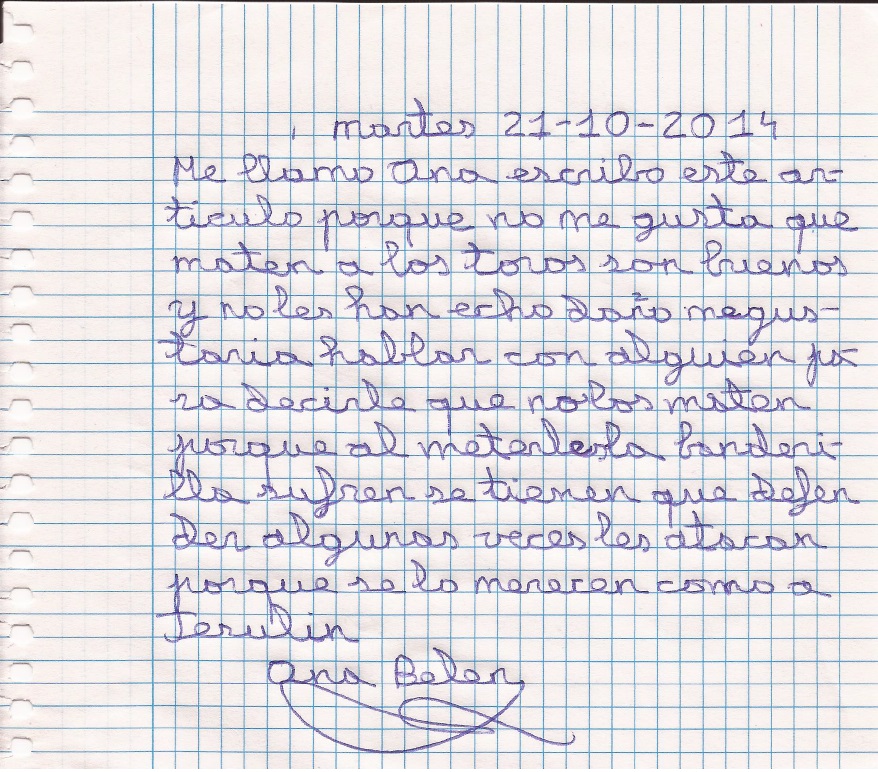 martes 21-10-2014
Me llamo Ana escribo este ar-
ticulo porque no me gusta que
maten a los toros son buenos
y no les han echo daño megus-
taria hablar con alguien pa
ra decirle que nolos maten
porque al meterlesla banderi-
lla sufren se tienen que defen
der algunas veces les atacan
porque se lo merecen como a
Jesulin
Ana Belen